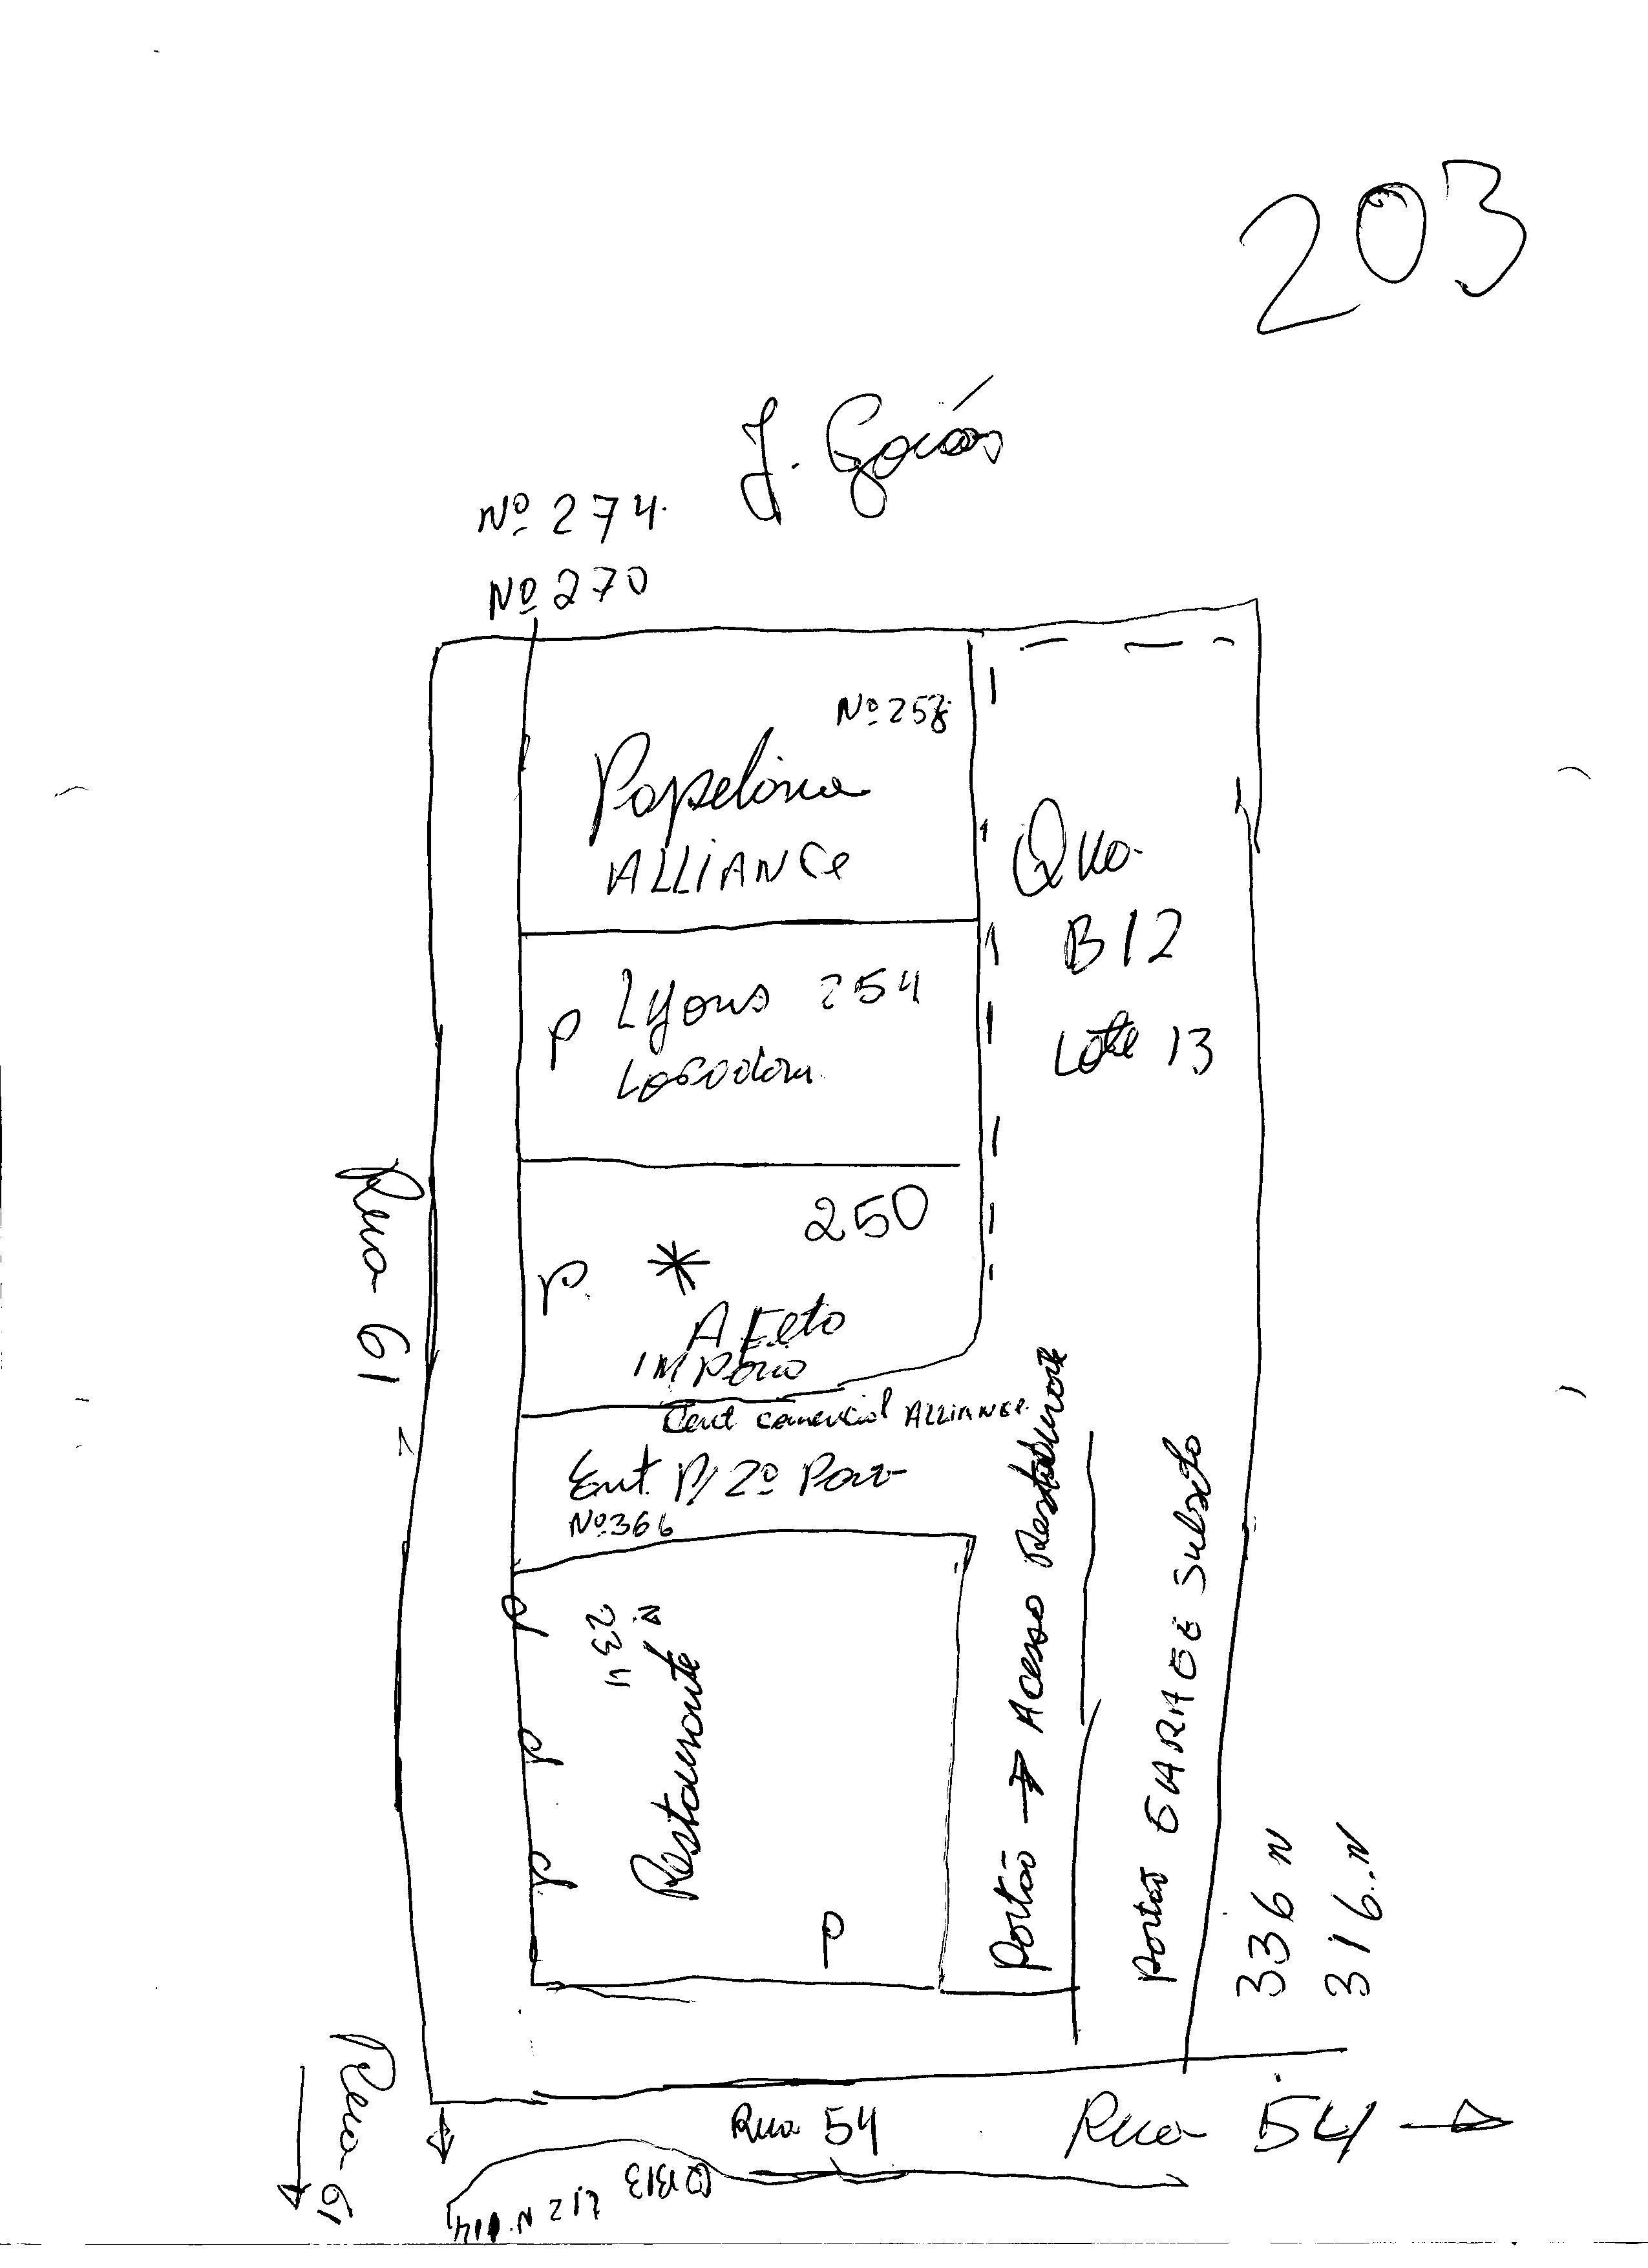 203
J. Goiás
Nº 274.
Nº 270
Nº 258
Papelaria
ALLIANCE
Qua
B12
Lote 13
P Lyons 254
P
250
*
AFeto
IMPério
Rua 61
Cent comercial ALLIANCE
Ent. P/ 2º Pav
Nº 366
N. 234
Restaurante
P
P
P
P
Portão → Acesso Restaurante
Portão GARAGE Subsolo
336 N
316..N
Rua 61
Rua 54
Rua 54
QB13
L12 Nº 114